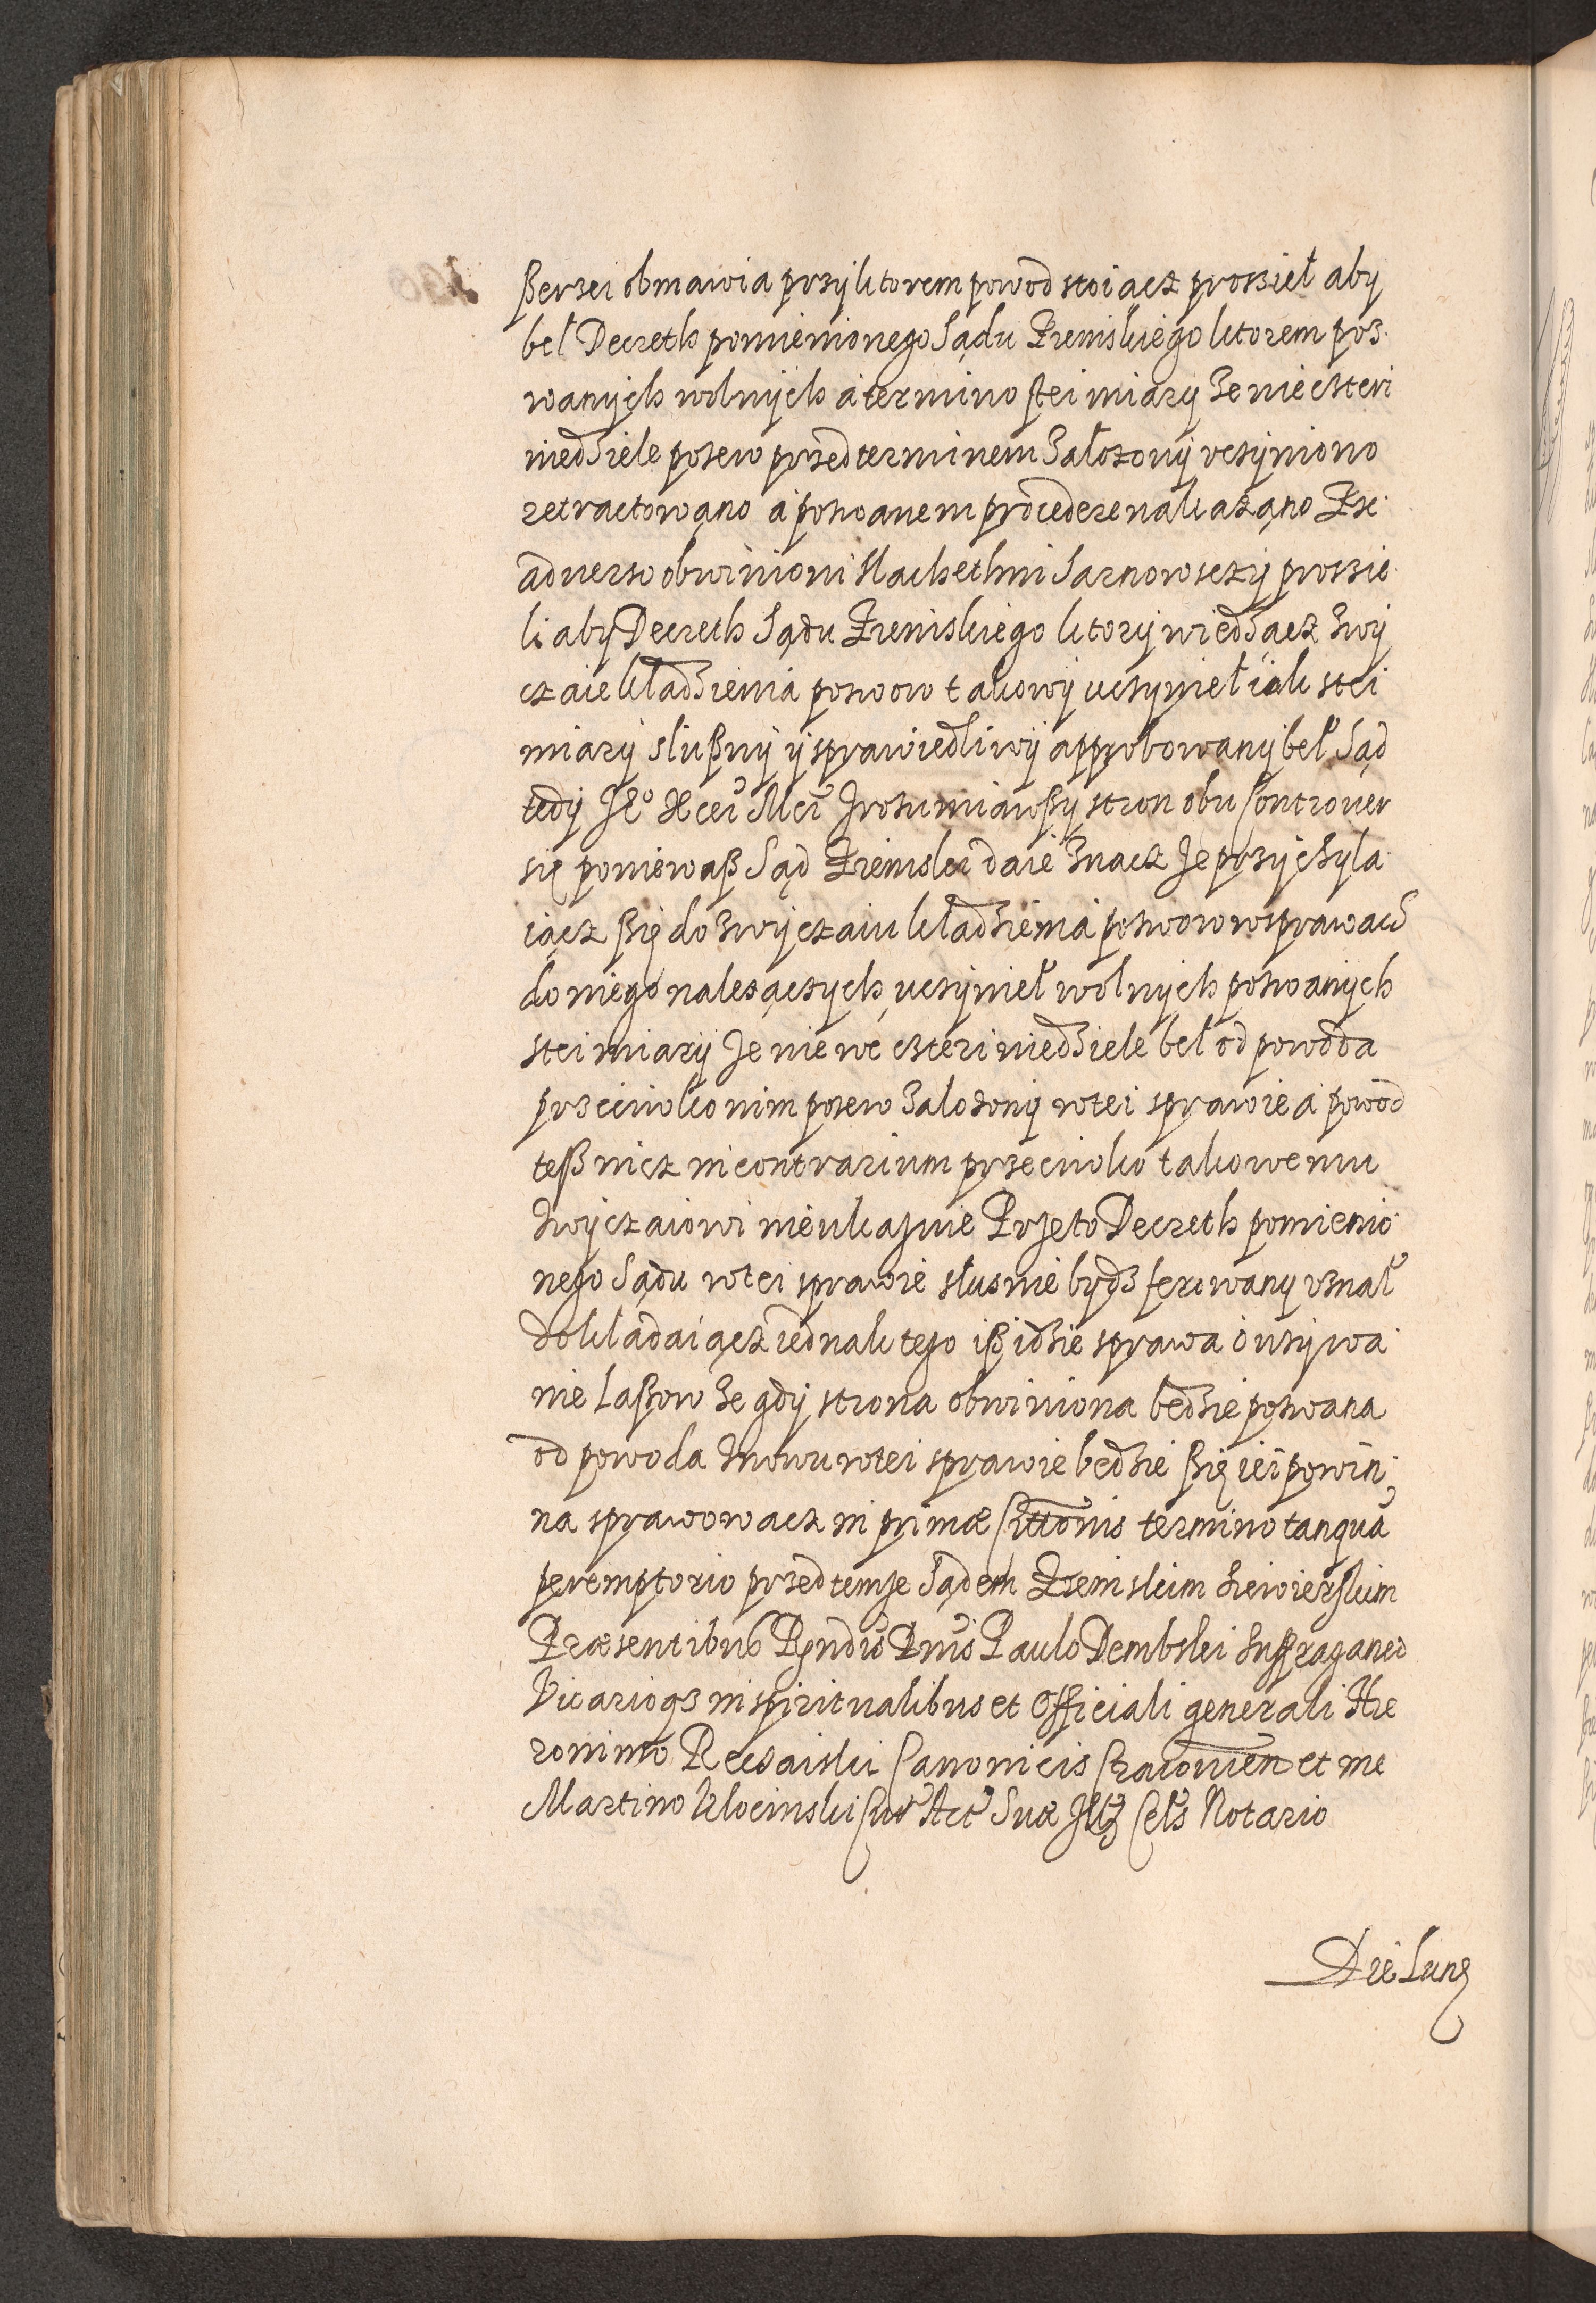 ßerzei obmawia przy ktorem powod stoiacz prosziel aby
bel Decreth pomienionego Sądu Ziemskiego ktorem poz
wanych wolnych a termino ßtei miary ze nie czteri
niedziele pozew przed terminem zalozony vczyniono
retractowano a pozwanem procedere nakazano Ex
aduerso obwinioni slachethni Sarnowsczy proszie
li aby Decreth Sądu Ziemskiego ktory wiedzacz zwy
czaie kladzienia pozwow takowy vczyniel iako stei
miary slußny y sprawiedliwy approbowany bel Sąd
tedy Jeo Xcei Mci zrozumiawßy stron obu Controuer
się poniewaß Sąd Ziemski daie znacz ze przychyla
iącz ßię do zwyczaiu kladzienia pozwow w sprawach
do niego nalezączych, vczyniel wolnych pozwanych
stei miary ze nie we czteri niedziele bel od powodda
przeciwko nim pozew zalozony w tei sprawie a powod
teß nicz in contrarium przeciwko takowemu
zwyczaiowi nie ukazuie Przeto Decreth pomienio
nego Sądu w tei sprawie slusnie bydz ferowany vznal
dokladaiącz iednak tego iß idzie sprawa o uzywa
nie Laßow ze gdy strona obwiniona bedzie pozwana
od powoda znowu w tei sprawie bedzie ßię iei powin
na sprawowacz in primæ Cittōnis termino tanquā
peremptorio przed temze Sądem Ziemskim Siewierskim
Præsentibus Rdis Dnis Paulo Dembski Suffraganeo
Vicarioqz in spiritualibus et Officiali generali Hie
ronimo Canonicis Cracouien et me
Martino Klocinski Cur Act Suæ Illz Cels Notario
Die Lunę